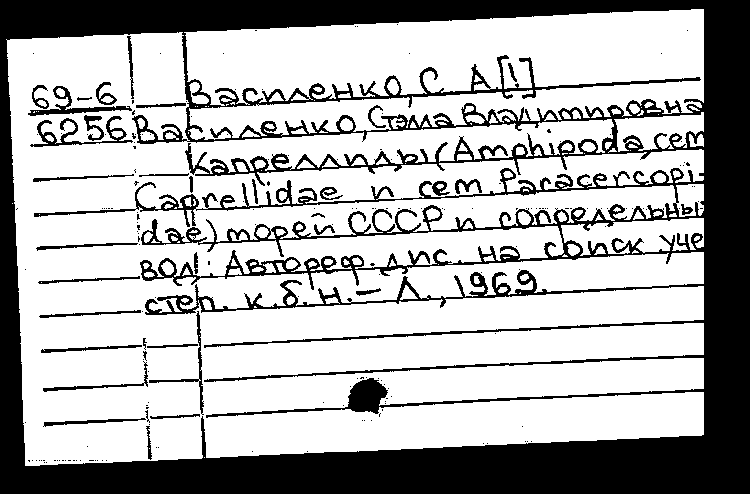 69-6 Василенко, С А [!]
6256 Василенко, Стэма Владимировна
Капреллиды (Amphipoda, сем
Caprellidae и сем. Paracercopi-
dae) морей СССР и сопредельны
вод. Автореф. дис. на соиск уче
степ. к.б.н. – Л., 1969.